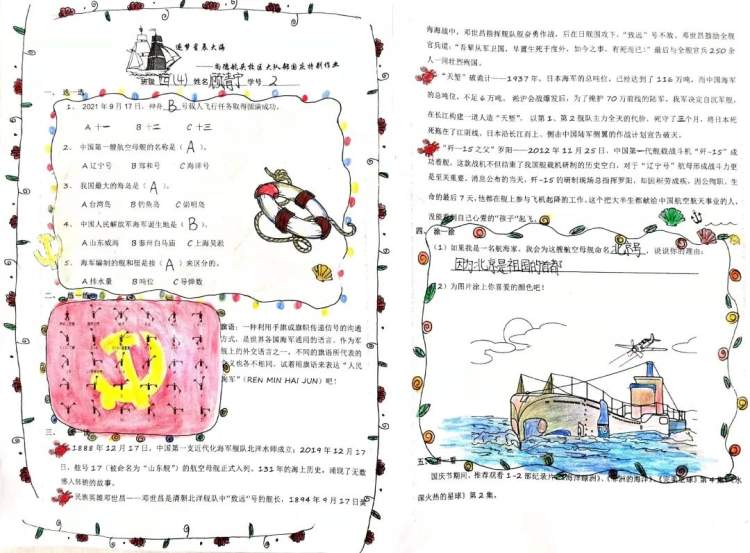 逐梦星辰大海
班级 四(4) 姓名 顾清宁 学号 2
一、选一选
1、2021年9月17日，神舟 B 号载人飞行任务取得圆满成功。
A 十一 B 十二 C 十三
2、中国第一艘航空母舰的名称是（A）。
A 辽宁号 B 郑和号 C 海洋号
3、我国最大的海岛是（A）。
A 台湾岛 B 钓鱼岛 C 崇明岛
4、中国人民解放军海军诞生地是（B）。
A 山东威海 B 泰州白马庙 C 上海吴淞
5、海军编制的舰和艇是按（A）来区分的。
A 排水量 B 吨位 C 导弹数
旗语：一种利用手旗或旗帜传递信号的沟通
方式，是世界各国海军通用的语言。作为军
舰上的外交语言之一，不同的旗语所代表的
意义也各不相同。试着用旗语来表达“人民
海军”（REN MIN HAI JUN）吧！
三、
1888年12月17日，中国第一支近代化海军舰队北洋水师成立；2019年12月17
日，舷号17（被命名为“山东舰”）的航空母舰正式入列。131年的海上历史，涌现了无数
感人转折的故事。
民族英雄邓世昌——邓世昌是清朝北洋舰队中“致远”号的舰长，1894年9月17日黄
海海战中，邓世昌指挥舰队奋勇作战，后在日舰围攻下，“致远”号不敌，邓世昌鼓励全舰
官兵道：“吾辈从军卫国，早置生死于度外，如今之事，有死而已！”最后与全舰官兵250余
人一同壮烈殉国。
“天堑”破诡计——1937年，日本海军的总吨位，已经达到了116万吨，而中国海军
的总吨位，不足6万吨。淞沪会战爆发后，为了掩护70万前线的陆军，我军决定自沉军舰，
在长江构建一道人造“天堑”。以第1、第2舰队主力全灭的代价，死守了三个月，将日本死
死拖在了江阴线，日本沿长江而上、侧击中国陆军侧翼的作战计划宣告破灭。
“歼-15之父”罗阳——2012年11月25日，中国第一代舰载战斗机“歼-15”成
功着舰。这款战机不但结束了我国舰载机研制的历史空白，对于“辽宁号”航母形成战斗力更
是至关重要。消息公布的当天，歼-15的研制现场总指挥罗阳，却因积劳成疾，因公殉职。生
命的最后7天，他都在舰上参与飞机起降的工作。这个把大半生都献给中国航空航天事业的人，
没能看到自己心爱的“孩子”起飞。
四、涂一涂
（1）如果我是一名航海家，我会为这艘航母舰命名 北京号，谈谈你的理由：
因为北京是祖国的首都
（2）为图片涂上你喜爱的颜色吧！
五、看一看
国庆节期间，推荐观看1-2部纪录片
深火热的星球》第2集。